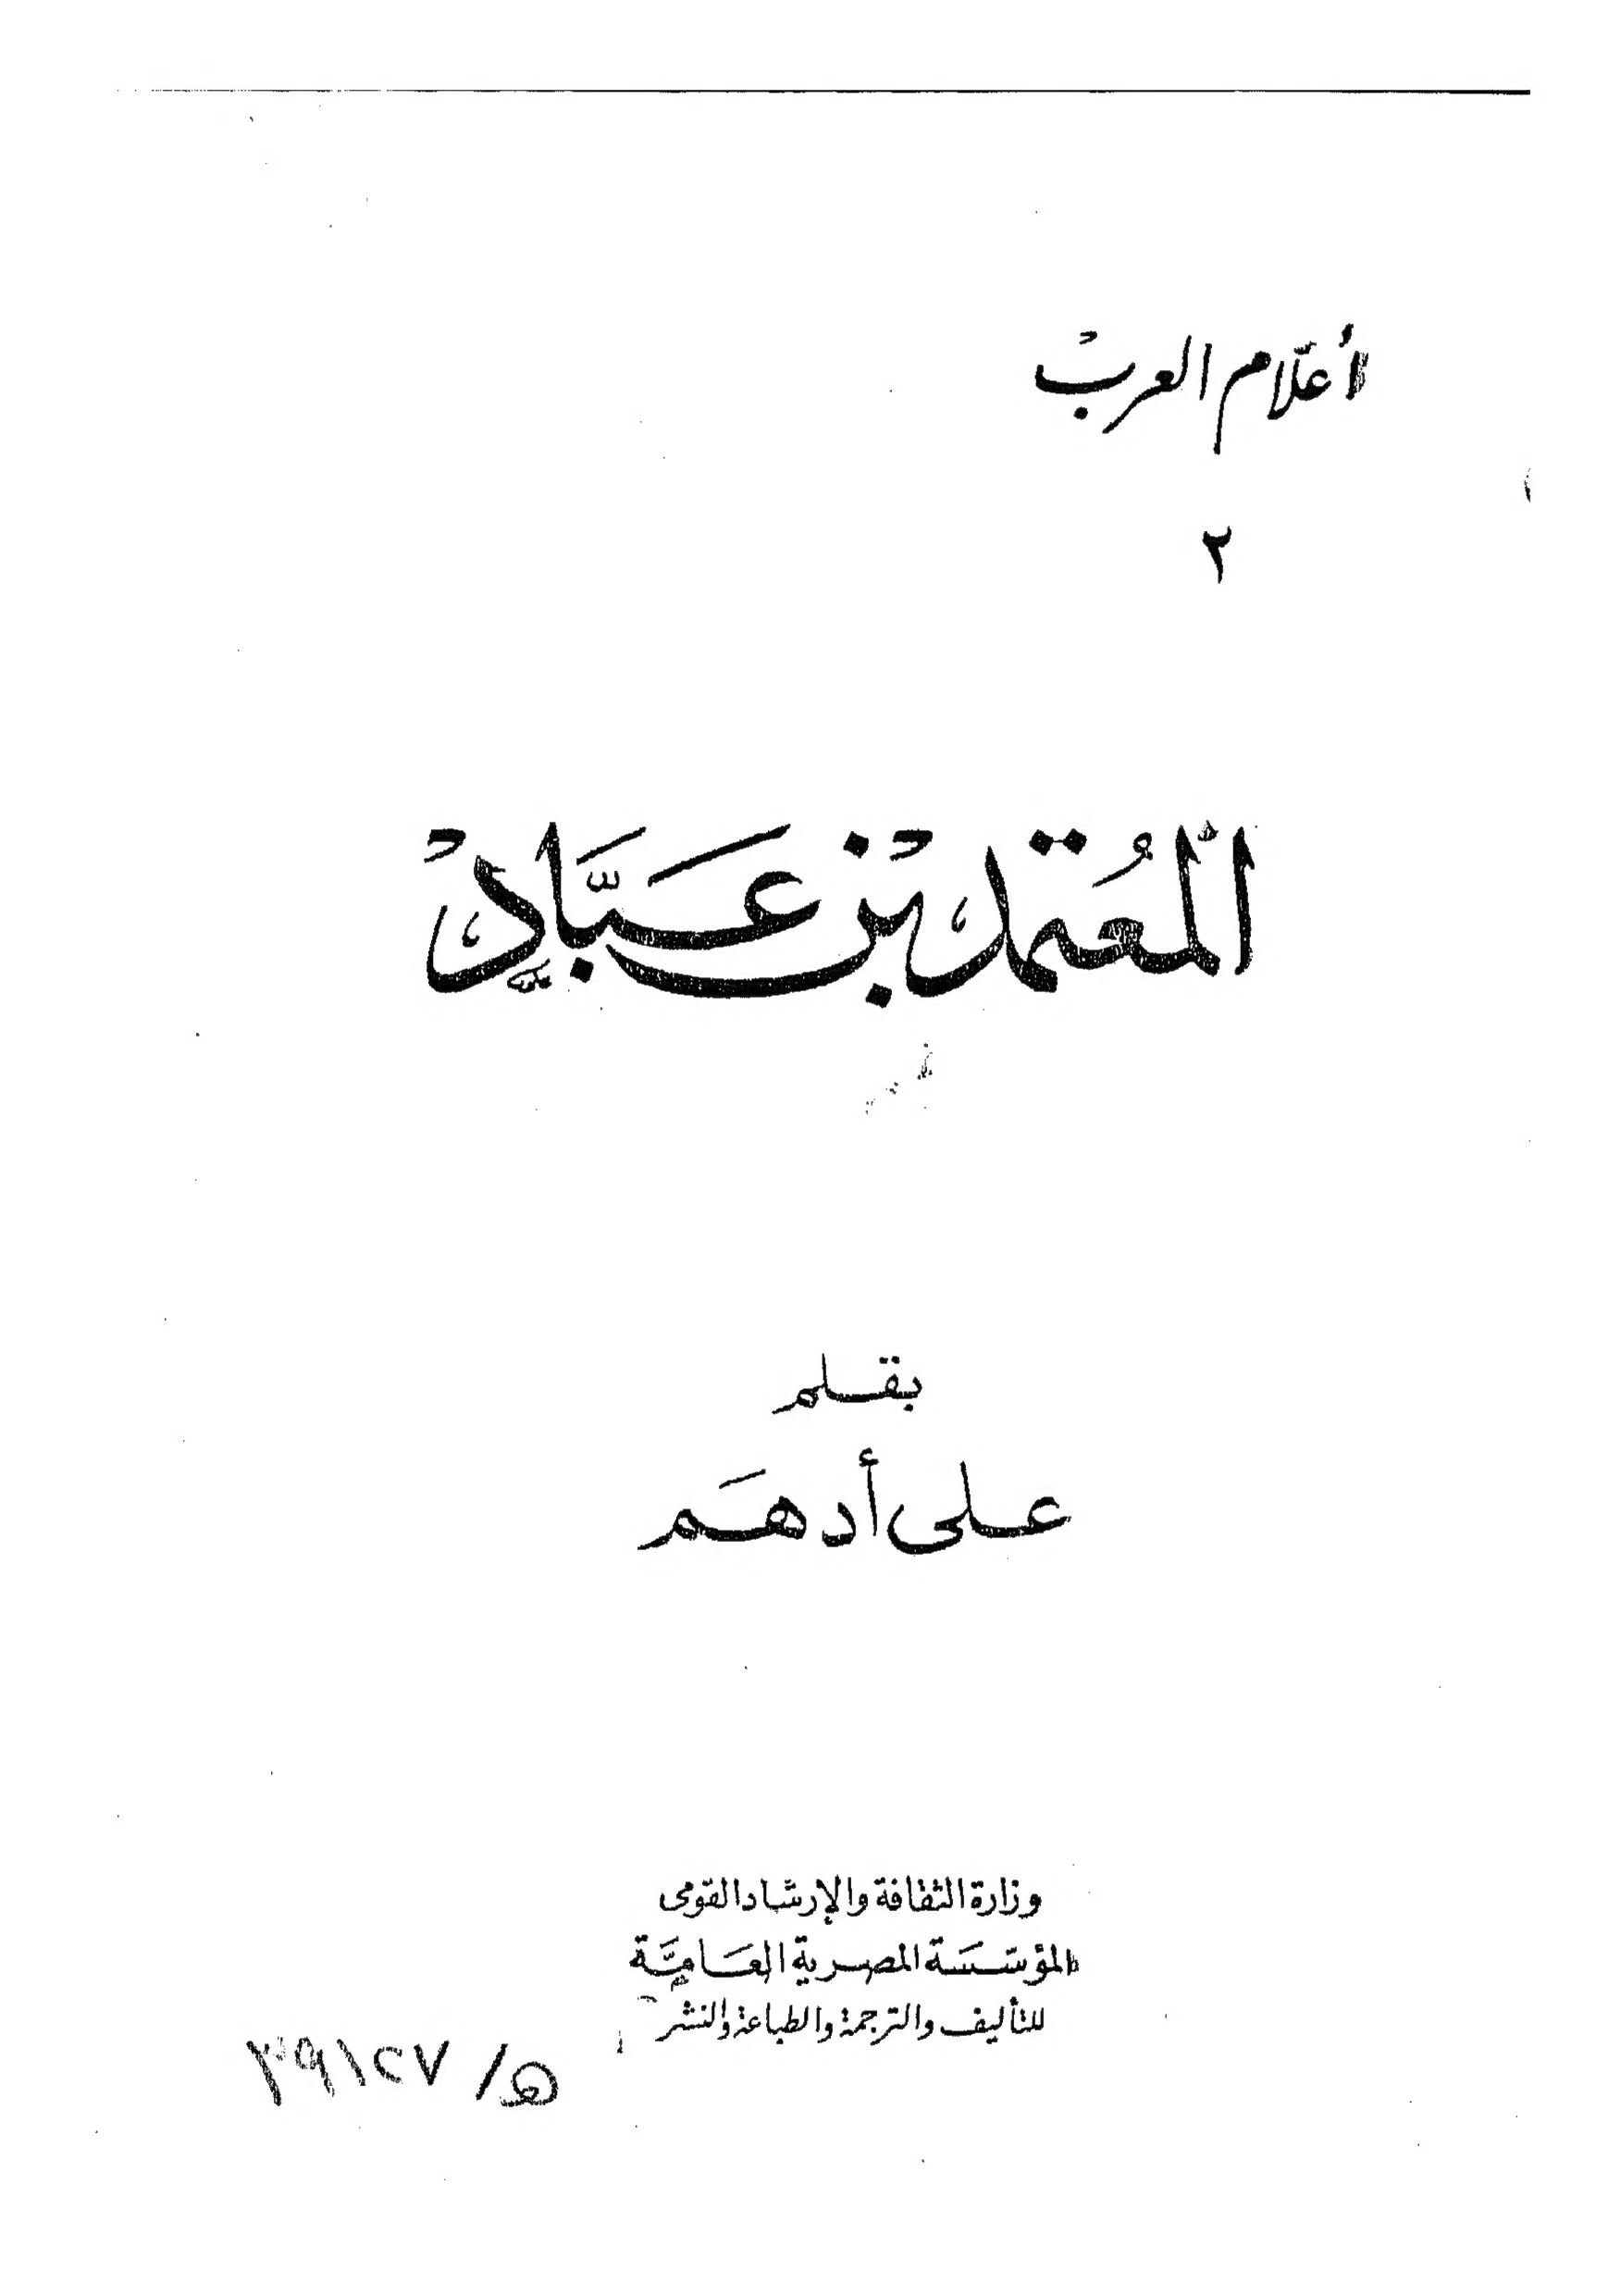 أعلام العرب
٢
المعتمد بن عباد
بقلم
على أدهم
وزارة الثقافة والإرشاد القومى
المؤسسة المصرية العامة
للتأليف والترجمة والطباعة والنشر